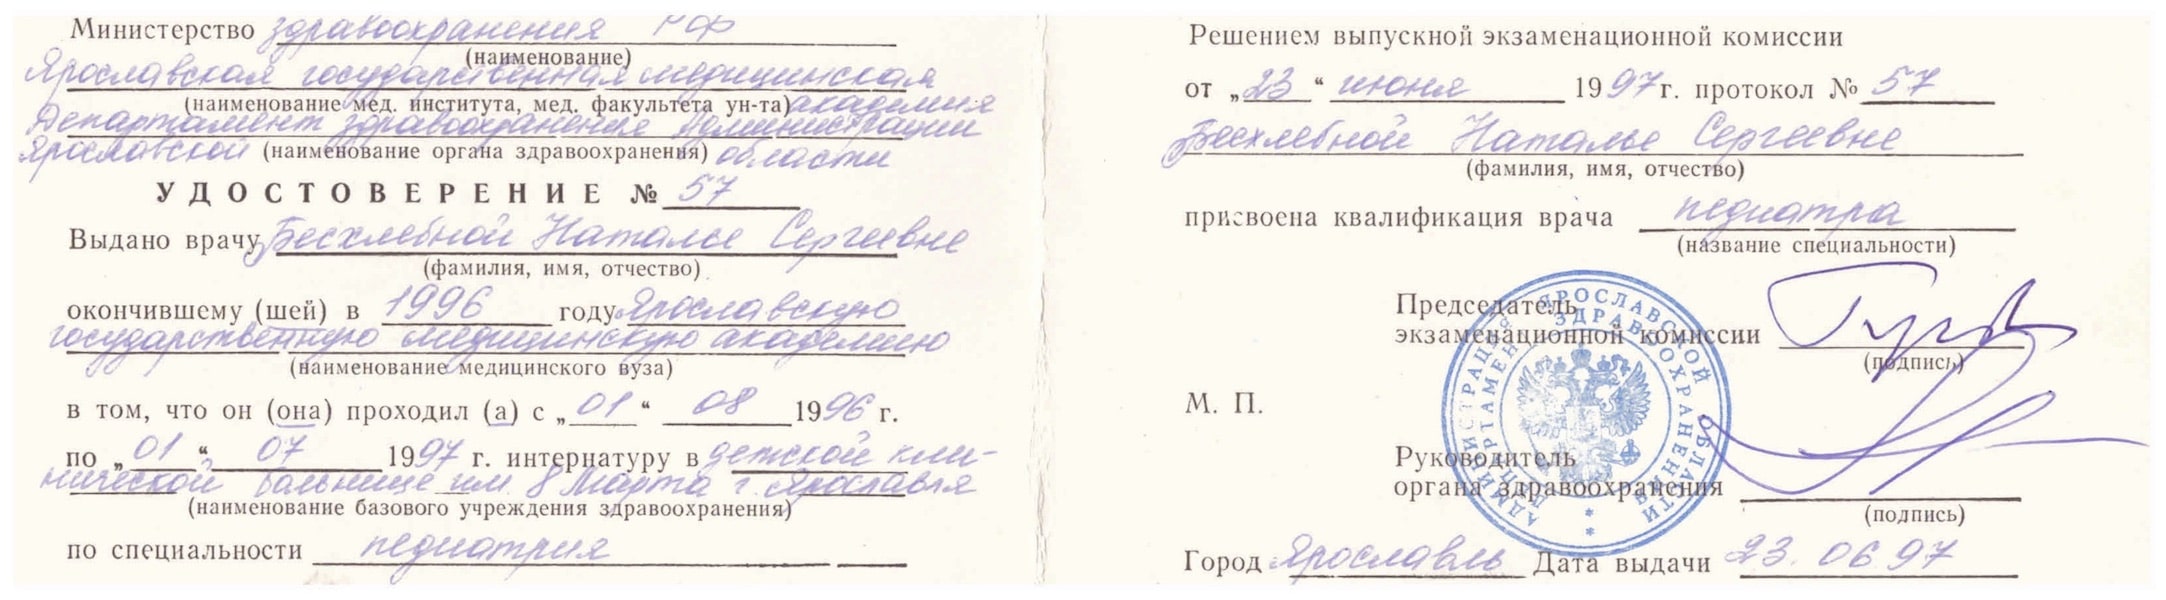 Министерство здравоохранения РФ
(наименование)
Ярославская государственная медицинская
(наименование мед. института, мед. факультета ун-та) академия
Департамент здравоохранения Администрации
Ярославской (наименование органа здравоохранения) области
УДОСТОВЕРЕНИЕ № 57
Выдано врачу Бесхлебной Наталье Сергеевне
(фамилия, имя, отчество)
окончившему (шей) в 1996 году Ярославскую
государственную медицинскую академию
(наименование медицинского вуза)
в том, что он (она) проходил (а) с „01“ 08 1996 г.
по „01“ 07 1997 г. интернатуру в детской кли-
нической больнице им. 8 Марта г. Ярославля
(наименование базового учреждения здравоохранения)
по специальности педиатрия
Решением выпускной экзаменационной комиссии
от „23“ июня 1997 г. протокол № 57
Бесхлебной Наталье Сергеевне
(фамилия, имя, отчество)
присвоена квалификация врача педиатра
(название специальности)
Председатель
экзаменационной комиссии
(подпись)
М. П.
АДМИНИСТРАЦИЯ ЯРОСЛАВСКОЙ ОБЛАСТИ
ДЕПАРТАМЕНТ ЗДРАВООХРАНЕНИЯ
Руководитель
органа здравоохранения
(подпись)
Город Ярославль Дата выдачи 23.06.97